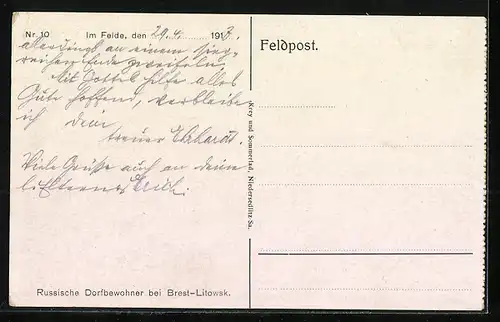 Nr. 10 Im Felde, den 29.4. 1917.
allerdings an einem sieg-
reichen Ende zweifeln.
Mit Gottes Hilfe alles
Gute hoffend, verbleibe
ich Dein
treuer Ekhardt.
Viele Grüsse auch an deine
Feldpost.
Kery und Sommerlad, Niedersedlitz Sa.
Russische Dorfbewohner bei Brest-Litowsk.